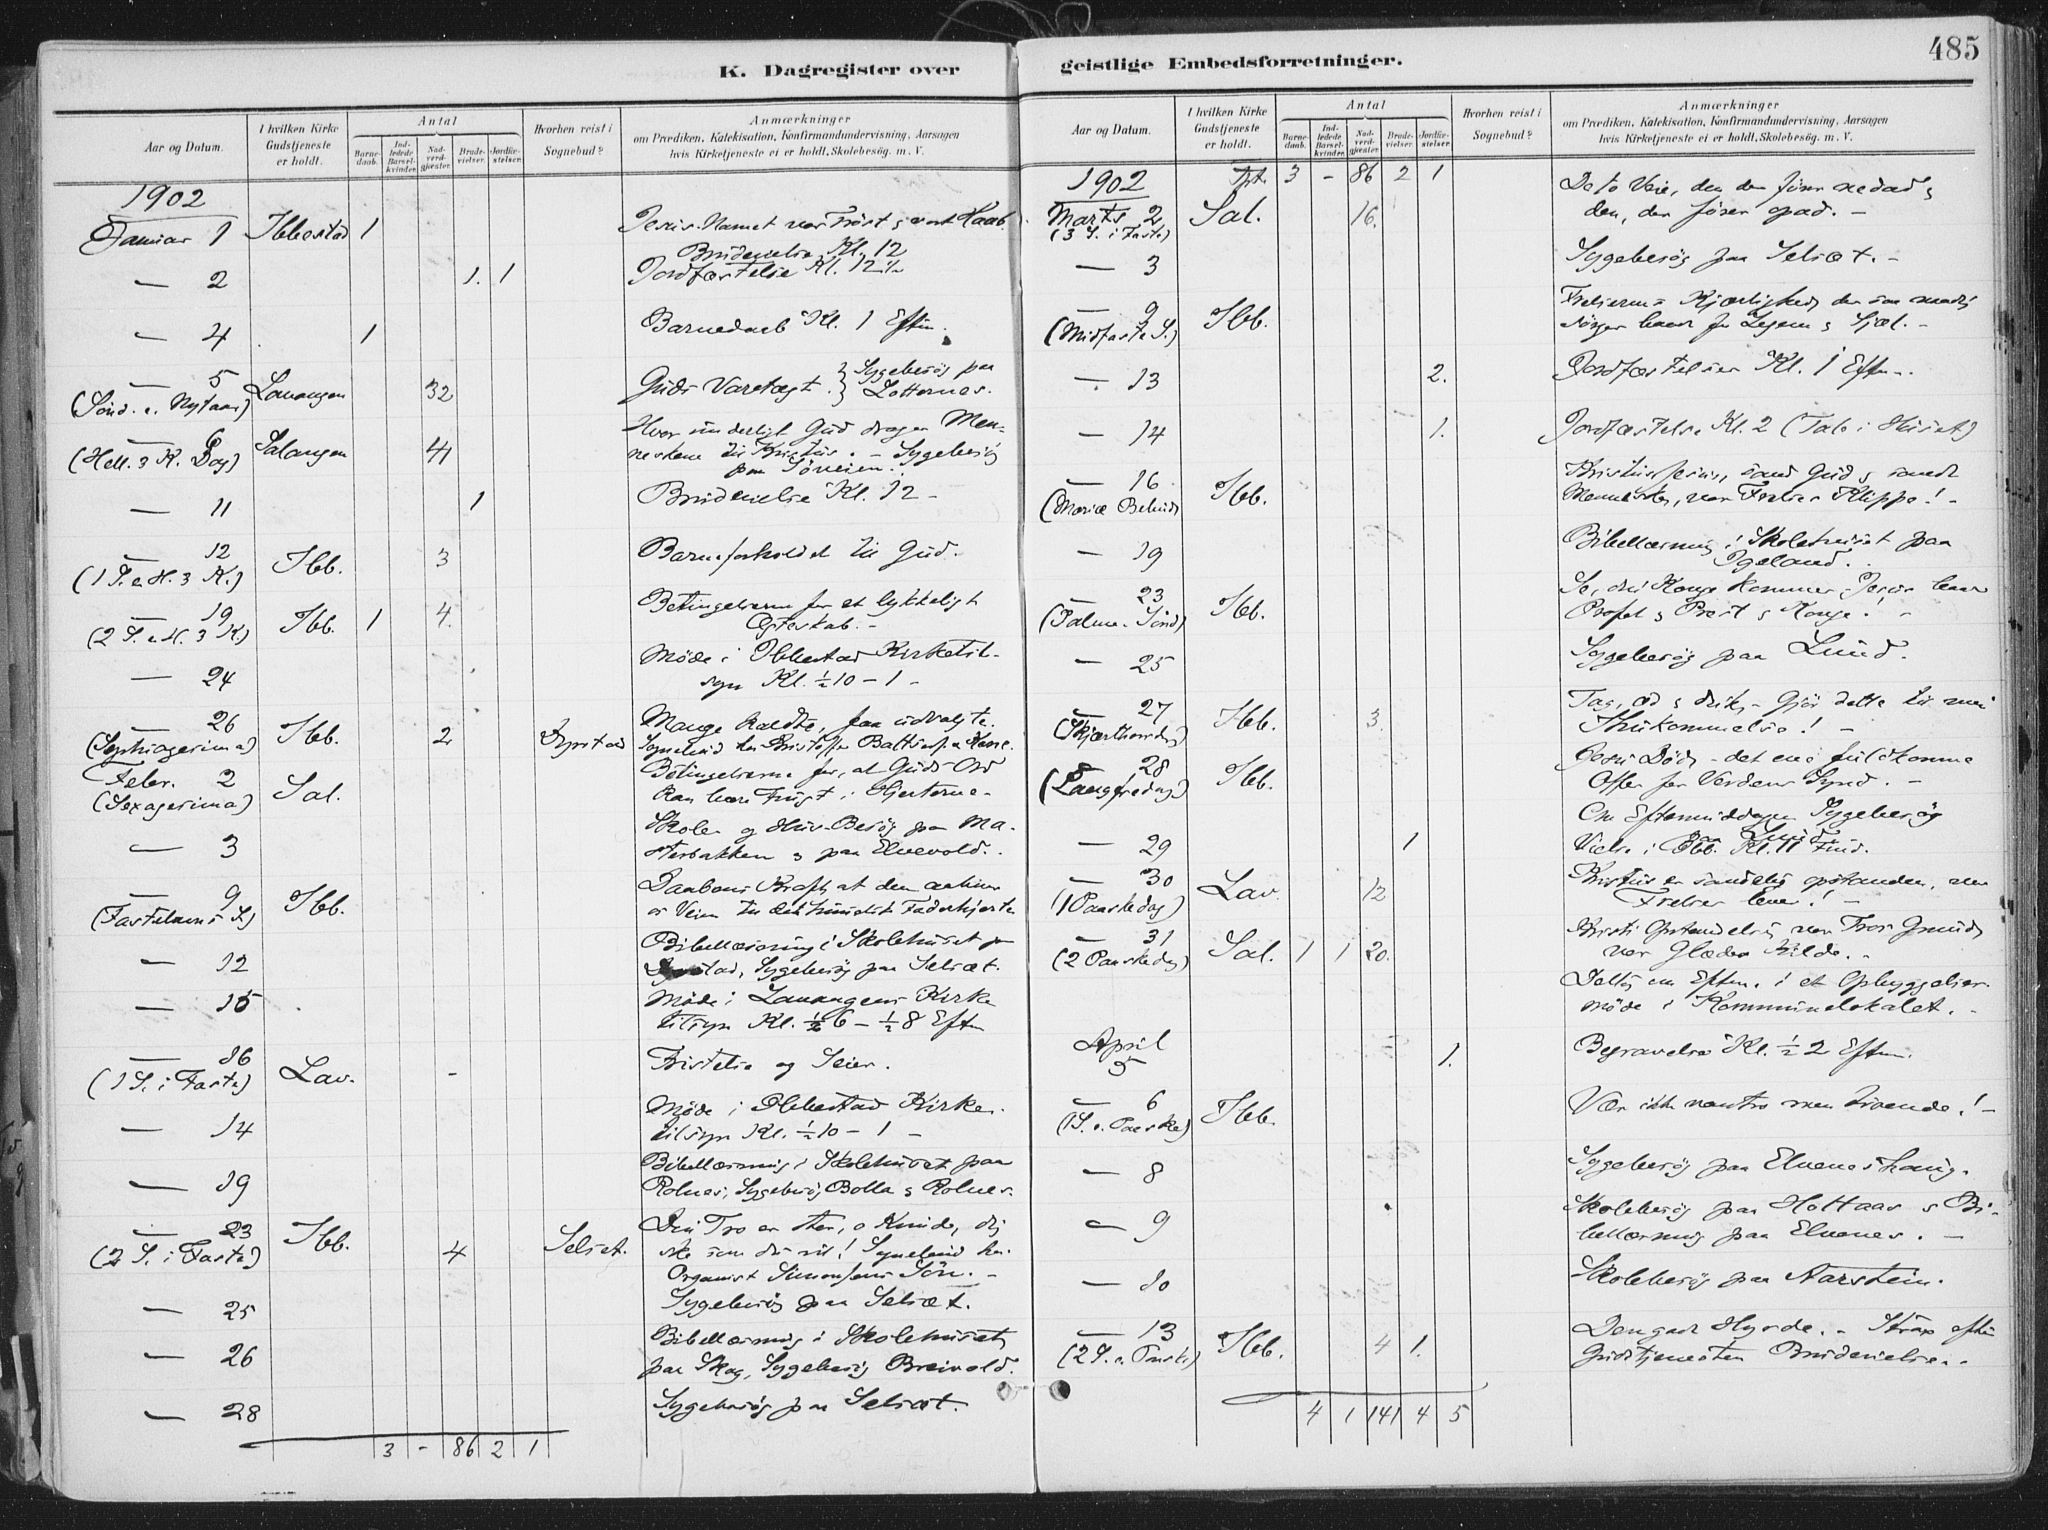 K. Dagregister over geistlige Embedsforretninger.
485
Aar og Datum.
I hvilken Kirke Gudstjeneste er holdt.
Antal
Barnedaab.
Indledede Barselkvinder.
Nadverdgjæster.
Brudevielser.
Jordfæstelser.
Hvorhen reist i Sognebud?
Anmærkninger
om Prædiken, Katekisation, Konfirmandundervisning, Aarsagen
hvis Kirketjeneste ei er holdt, Skolebesøg. m. V.
1902
Januar 1 Ibbestad 1 Jesus-Navnet vor Trøst og vort Haab.
Brudevielse Kl. 12
— 2 1. 1 Jordfæstelse Kl. 12½
— 4 1 Barnedaab Kl. 1 Eftm.
— 5 Lavangen 32 Guds Varetægt. } Sygebesøg paa
(Sønd. e. Nytaar) Lotternes.
— 6 Salangen 41 Hvor underligt Gud drager Men-
(Hell. 3 K. Dag) neskene til Kristus. — Sygebesøg
paa Søveien.
— 11 1 Brudevielse Kl. 12 —
— 12 Ibb. 3 Barneforholdet til Gud.
(1 S. e. H. 3 K.)
— 19 Ibb. 1 4. Betingelserne for et lykkeligt
(2 S. e. H. 3 K.) Ægteskab. —
— 24 Møde i Ibbestad Kirketil-
syn Kl. ½10 — 1 —
— 26 Ibb. 2 Dyrstad Mange kaldte, faa udvalgte.
(Septuagesima) Sognebud hos Kristoffer Baltsers.
Febr. 2 Sal. Betingelserne for, at Guds Ord
(Sexagesima) kan bære Frugt i Hjerterne —
— 3 Skole- og Hus-Besøg paa Ma-
sterbakken og paa Elvevold.
— 9 Ibb. Daabens Kraft, at den aabner
(Fastelavns S.) os Veien til det himmelske Faderhjerte
— 12 Bibellæsning i Skolehuset paa
Dyrstad, Sygebesøg paa Selsæt.
— 15 Møde i Lavangens Kirke
tilsyn Kl. ½6 — ½8 Eftm
— 16 Lav. - Fristelse og Seier.
(1 S. i Faste)
— 14 Møde i Ibbestad Kirke-
tilsyn Kl. ½10 — 1 —
— 19 Bibellæsning i Skolehuset paa
Rolnes, Sygebesøg Bolla og Rolnes.
— 23 Ibb. 4 Selset. Din Tro er stor, o Kvinde, dig
(2 S. i Faste) ske som du vil! Sognebud hos
Organist Simonsens Søn. —
— 25 Sygebesøg paa Selsæt.
— 26 Bibellæsning i Skolehuset
paa Skog, Sygebesøg Breivold.
— 28 Sygebesøg paa Selsæt.
3 - 86 2 1
Aar og Datum.
I hvilken Kirke Gudstjeneste er holdt.
Antal
Barnedaab.
Indledede Barselkvinder.
Nadverdgjæster.
Brudevielser.
Jordfæstelser.
Hvorhen reist i Sognebud?
Anmærkninger
om Prædiken, Katekisation, Konfirmandundervisning, Aarsagen
hvis Kirketjeneste ei er holdt, Skolebesøg. m. V.
1902 Trt. 3 - 86 2 1
Marts 2 Sal. 16. De to Veie, den der fører nedad og
(3 S. i Faste) den, der fører opad. —
— 3 Sygebesøg paa Selsæt. —
— 9 Ibb. Frelserens Kjærlighed,
(Midfaste S.) sørger baade for Legem og Sjæl. —
— 13 2. Jordfæstelser Kl. 1 Eftm.
— 14 1. Jordfæstelse Kl. 2 (Tale i Huset)
— 16 Ibb. Kristus Jesus, sand Gud og sandt
(Mariæ Bebud.) Menneske, vor Frelses Klippe! —
— 19 Bibellæsning i Skolehuset paa
Igeland.
— 23 Ibb. Se, din Konge kommer, Jesus baade
(Palme-Sønd) Profet og Prest og Konge! —
— 25 Sygebesøg paa Lund.
— 27 Ibb. 3. Tag, æd og drik — Gjør dette til min
(Skjærthorsdag) Ihukommelse! —
— 28 Ibb. Jesu Død — det ene fuldkomne
(Langfredag) Offer for Verdens Synd. —
Om Eftermiddagen Sygebesøg
paa Lund
— 29 1 Vielse i Ibb. Kl. 11 Fmd.
— 30 Lav 12 Kristus er sandelig opstanden, vor
(1 Paaskedag) Frelser lever! —
— 31 Sal. 1 1 20. Kristi Opstandelse vor Tros Grund,
(2 Paaskedag) vor Glædes Kilde. —
Deltog om Eftm. i et Opbyggelses-
møde i Kommunelokalet. —
April
5 1. Begravelse Kl. ½2 Eftm.
— 6 Ibb. Vær ikke vantro men troende! —
(1 S. e. Paaske)
— 8 Sygebesøg paa Elveneshaug.
— 9 Skolebesøg paa Hottaas og Bi-
bellæsning paa Elvenes. —
— 10 Skolebesøg paa Aarstein.
— 13 Ibb. 4 1. Den gode Hyrde. — Strax efter
(2 S. e. Paaske) Gudstjenesten Brudevielse. —
4 1 141 4 5